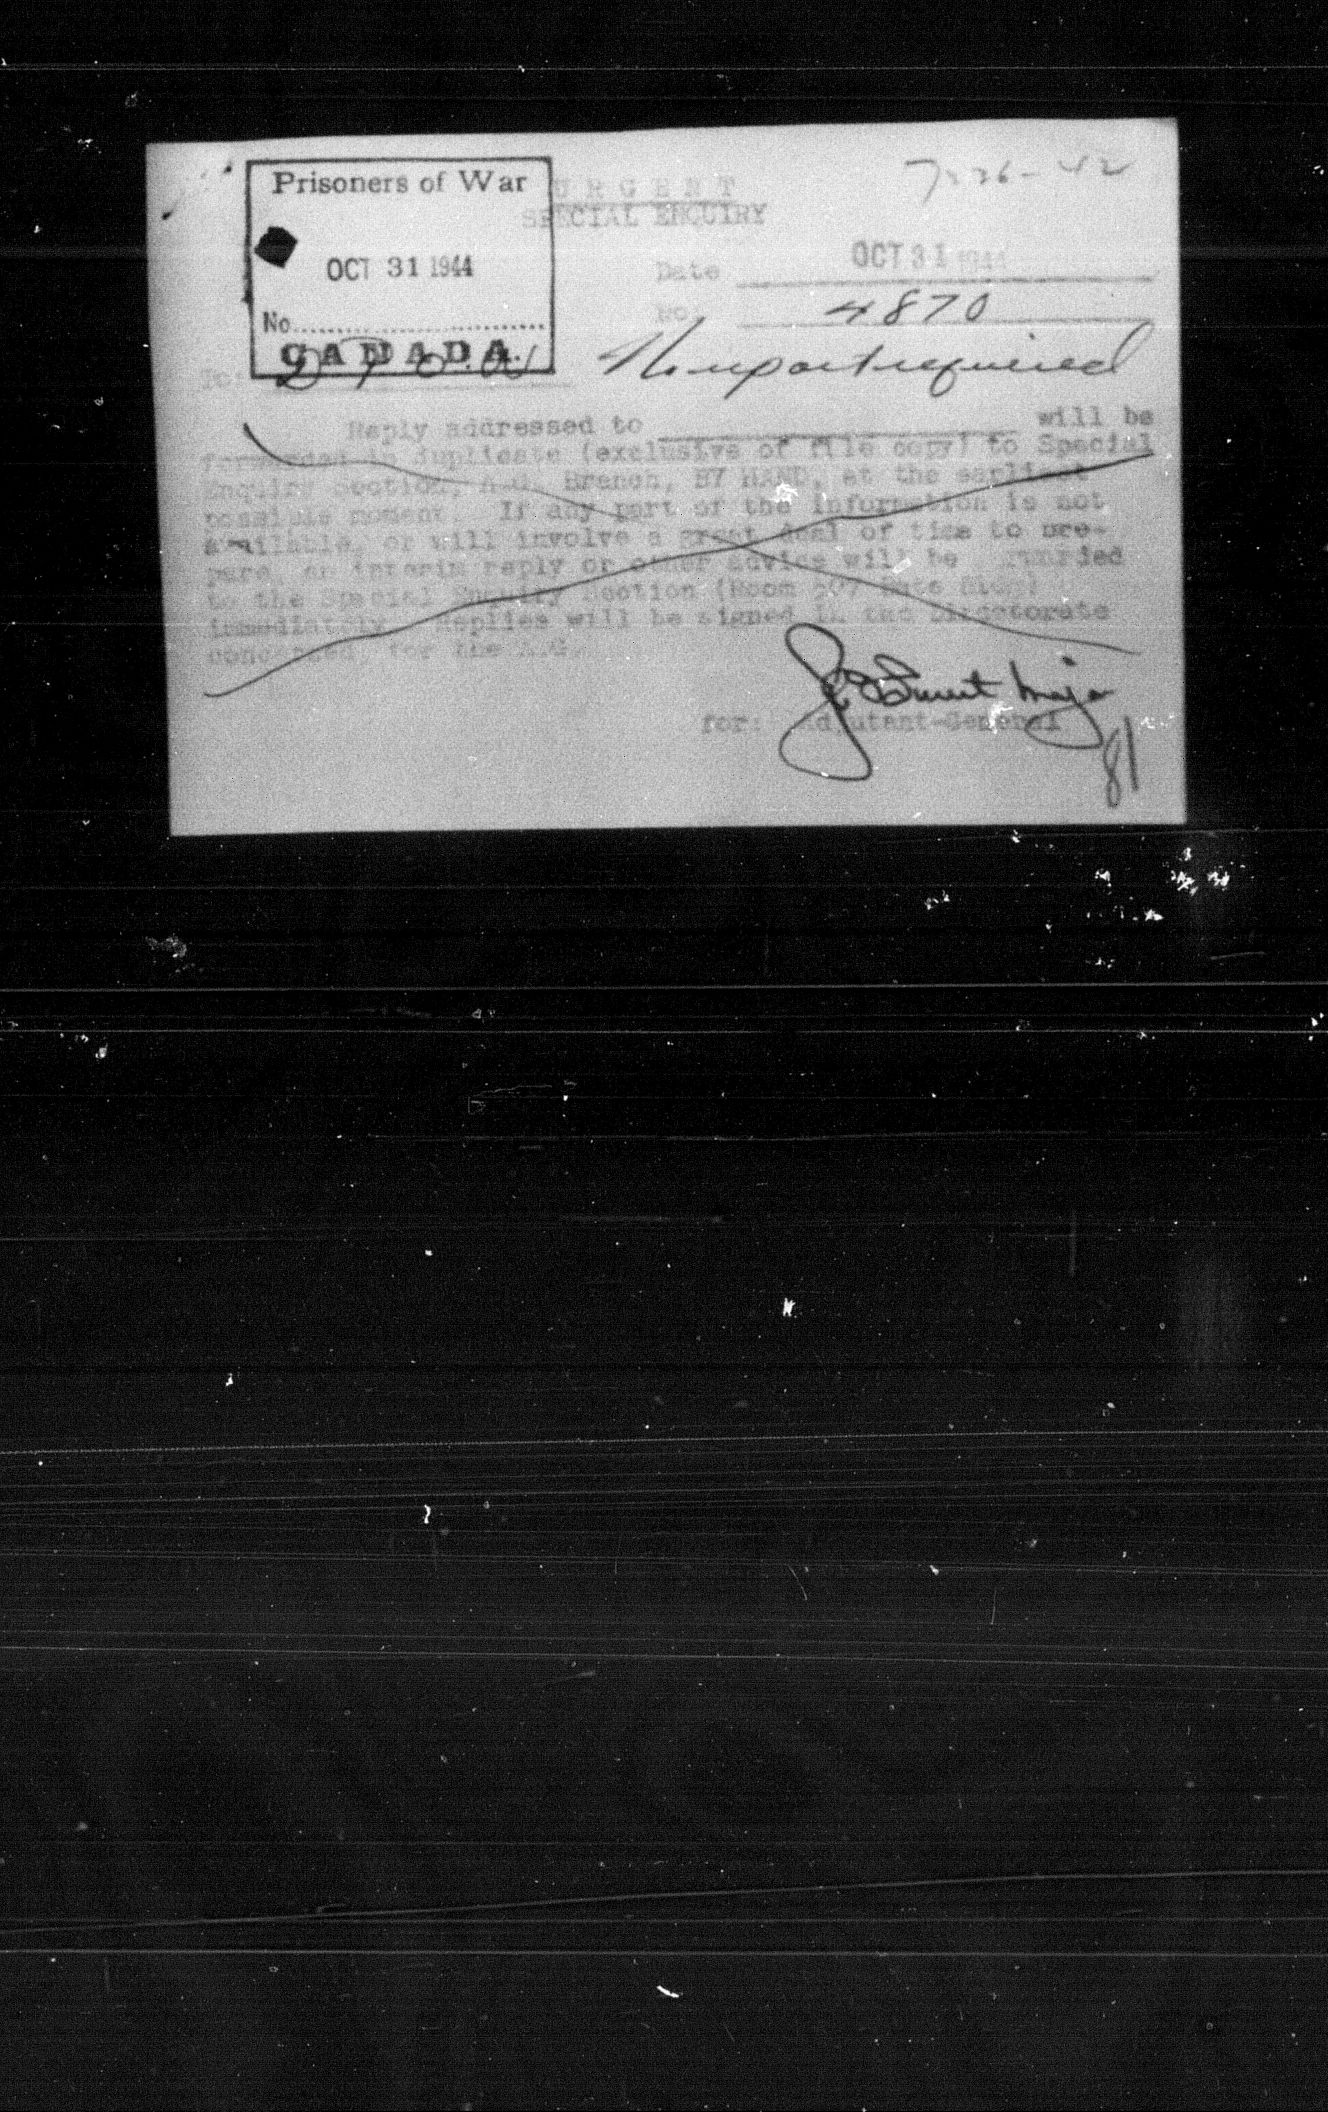 Prisoners of War
URGENT
SPECIAL ENQUIRY
OCT 31 1944
Date OCT 31 1944
No.
No. 4870
CANADA.
To: D P O W
No report required
Reply addressed to will be
forwarded in duplicate (exclusive of file copy) to Special
Enquiry Section, A.G. Branch, BY HAND, at the earliest
possible moment. If any part of the information is not
available, or will involve a great deal of time to pre-
pare, an interim reply or other advice will be
to the Special Enquiry Section (Room Bldg)
immediately. Replies will be signed in the Directorate
concerned, for the A.G.
for: Adjutant-General